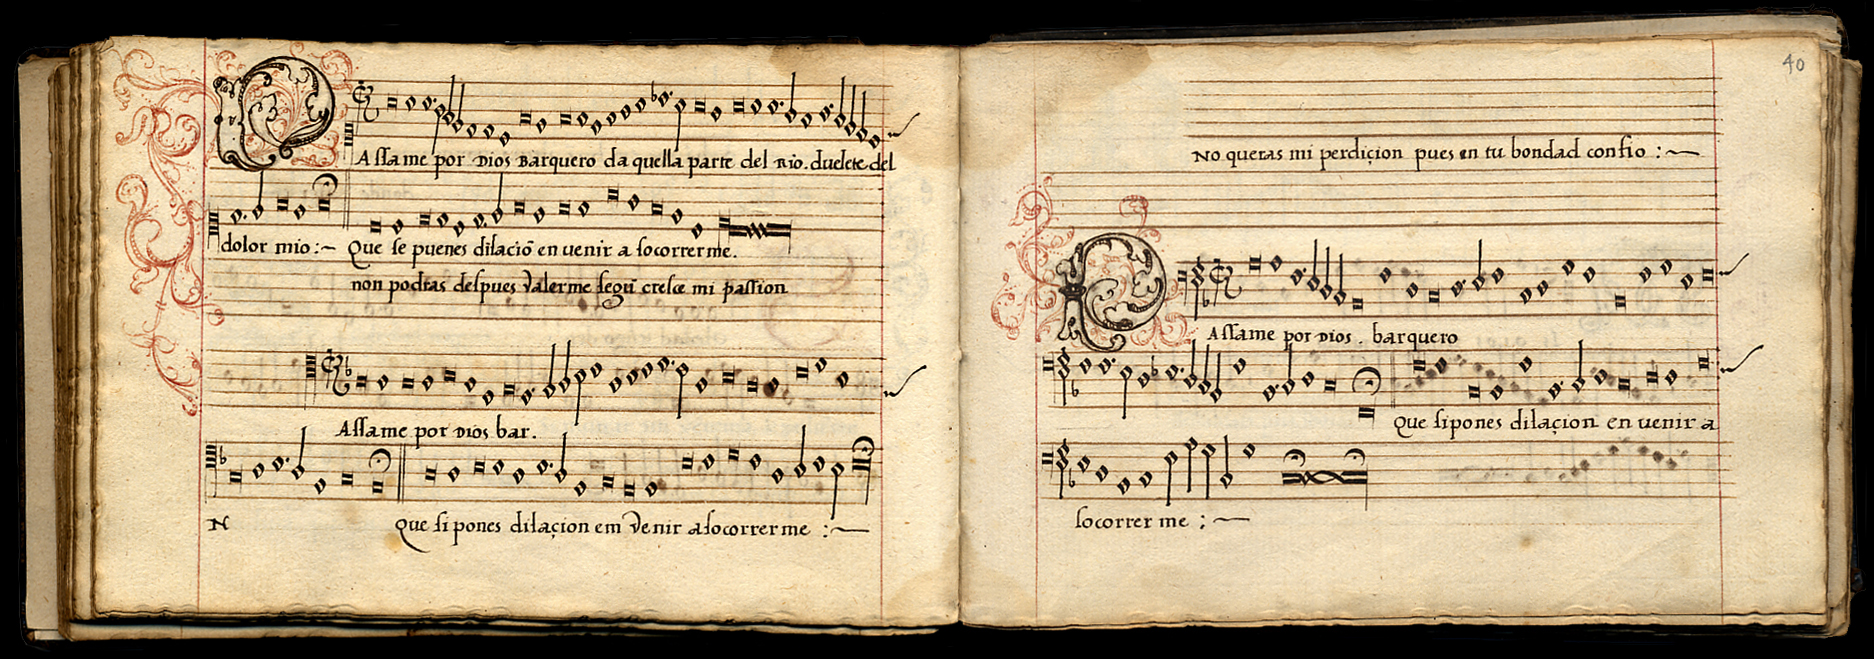 PAssame por Dios Barquero da quella parte del Rio. duelete del
dolor mio :~ Que se puenes dilaciõ en uenir a socorrer me.
non podras despues valerme segũ cresce mi passion
Assame por Dios bar.
N Que si pones dilaçion em venir a socorrer me :~
40
No queras mi perdiçion pues en tu bondad confio :~
PAssame por Dios . barquero
Que si pones dilaçion en uenir a
socorrer me ;~